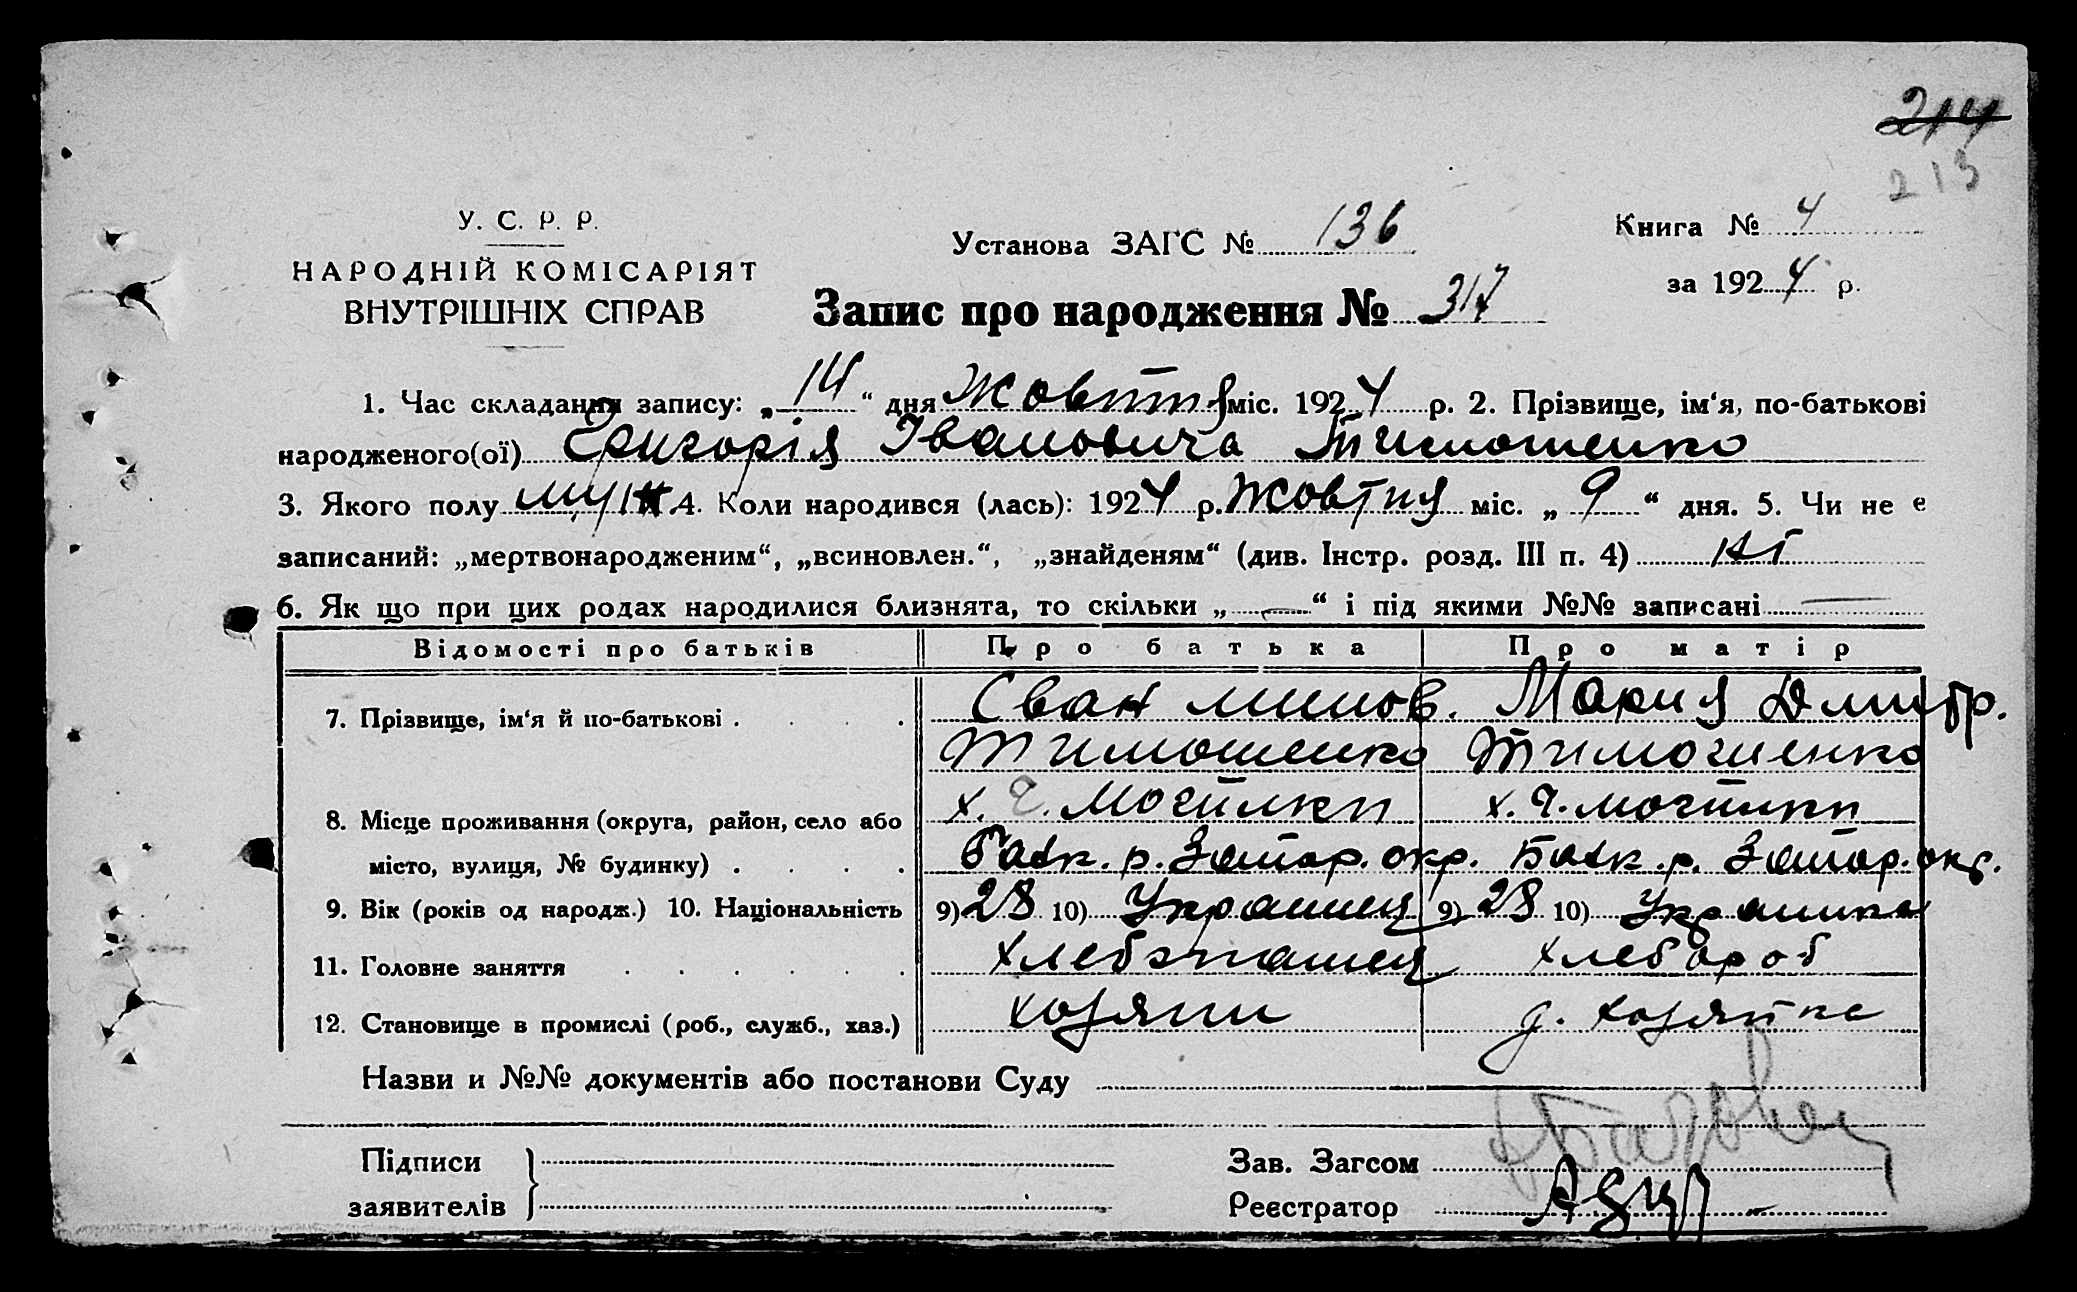 214
213
У. С. Р. Р.
НАРОДНІЙ КОМІСАРІЯТ
ВНУТРІШНІХ СПРАВ
Установа ЗАГС № 136
Книга № 4
за 1924 р.
Запис про народження № 317
1. Час складання запису: „14“ дня Жовтня міс. 1924 р. 2. Прізвище, ім'я, по-батькові
народженого(ої) Григорія Івановича Тимошенко
3. Якого полу муж 4. Коли народився (лась): 1924 р. Жовтня міс. „9“ дня. 5. Чи не є
записаний: „мертвонародженим“, „всиновлен.“, „знайденям“ (див. Інстр. розд. III п. 4) Ні
6. Як що при цих родах народилися близнята, то скільки „—“ і під якими №№ записані —
Відомості про батьків Про батька Про матір
7. Прізвище, ім'я й по-батькові . . . . Іван Мимов. Мария Дмитр.
Тимошенко Тимошенко
х. Ч. Могилки х. Ч. Могилки
8. Місце проживання (округа, район, село або
місто, вулиця, № будинку) . . . . р. Запор. окр. р. Запор. окр.
9. Вік (років од народж.) 10. Національність 9) 28 10) Украинец 9) 28 10) Украинка
11. Головне заняття . . . . . . хлебопашец хлебороб
12. Становище в промислі (роб., служб., хаз.) хозяин д. хозяйка
Назви и №№ документів або постанови Суду
Підписи
заявителів
Зав. Загсом
Реєстратор